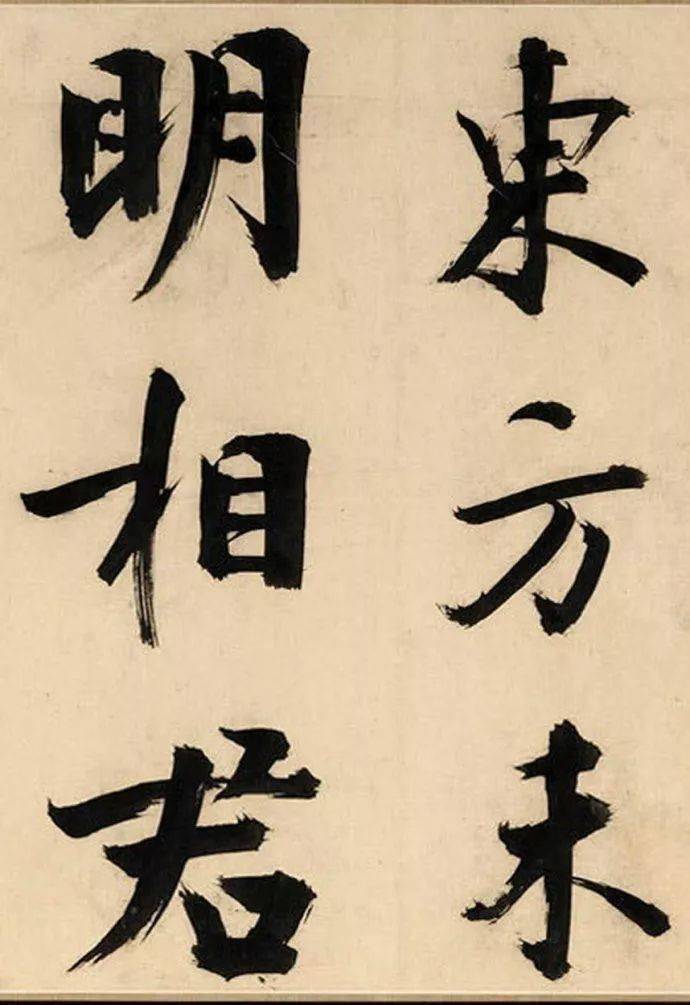 東方未
明相君